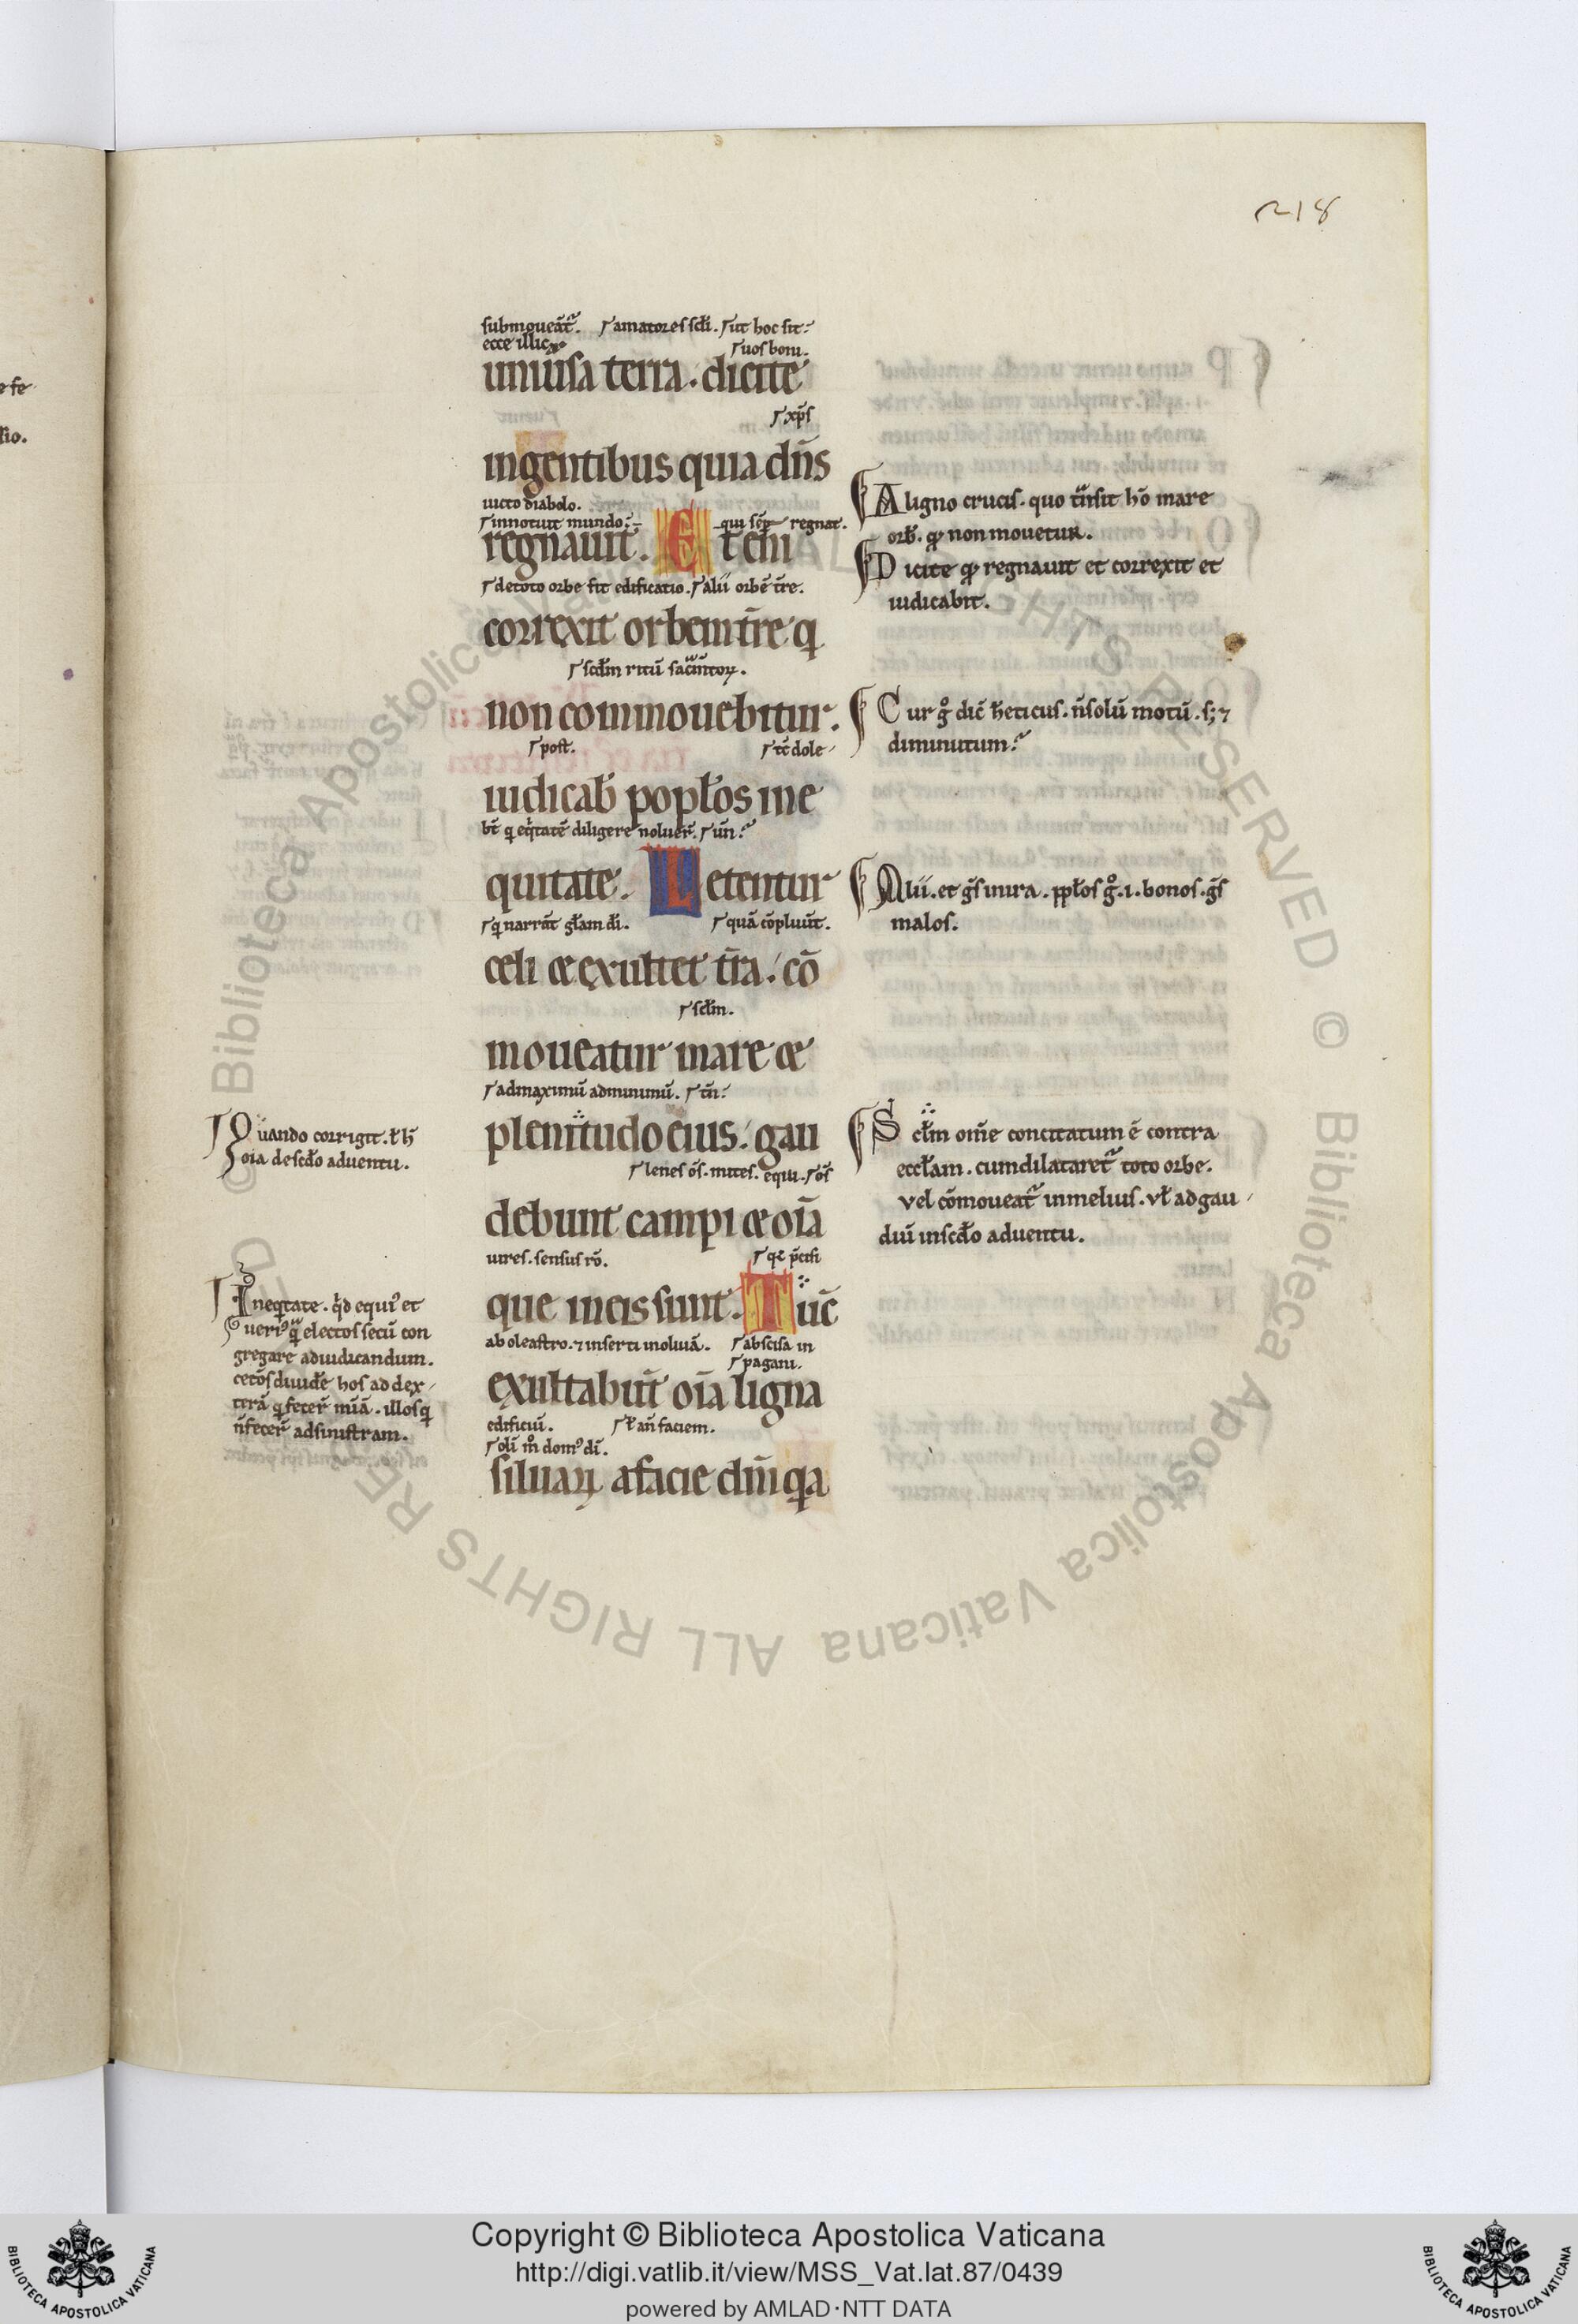 218
submoueat᷑. amatores scl̃i. ut hoc sit.
ecce illic uos boni.
uniuˀsa terra. dicite
xp̄s
ingentibus quia dñs
uicto diabolo.
innotuit mundo. qui sēp regnat.
regnauit. Eteni
de toto orbe fit edificatio. alii orbē tr̄e.
correxit orbem tr̄e q̄
scd̄m ritū sac̄m̄toꝝ.
non commouebitur.
post. tē dole
iudicab̄ popl̄os in e
bt̄ q̄ eq̄tatē diligere noluer̄. un̄.
quitate. Letentur
q̄ narrāt gl̄am dī. quā cōpluūt.
celi & exultet tr̄a. cō
scl̄m.
moueatur mare &
ad maximū ad minimū. tn̄.
plenitudo eius. gau
lenes ōs. mites. equi. ōs
debunt campi & oīa
uires. sensus rō.
que in eis sunt. Tūc
ab oleastro. ⁊ inserti in oliuā. abscisa in
pagani.
exultabūt oīa ligna
edificiū. ł an̄ faciem.
oli m̊ domꝰ dī.
siluaꝝ a facie dn̄i q̄a
A ligno crucis. quo t̄nsit hō mare
orb̄. qđ non mouetur.
Dicite qđ regnauit et correxit et
iudicabit.
Cur g̊ dic̄ h̄eticus. n̄ solū motū. s; ⁊
diminutum.
Alii. et ḡs in ira. ppl̄os g̊ .i. bonos. ḡs
malos.
Scl̄m om̄e concitatum ē contra
eccl̄am. cum dilataret᷑ toto orbe.
vel cōmoueat᷑ in melius. vł ad gau
diū in scd̄o aduentu.
Quando corrigit. ł h̄
oīa de scd̄o aduentu.
In eq̄tate. q̄d equiꝰ et
ueriꝰ q̄ electos secū con
gregare ad iudicandum.
cetōs diuid̄e hos ad dex
terā q̄ fecer̄ mīā. illos q̄
n̄ fecer̄ ad sinistram.
Copyright © Biblioteca Apostolica Vaticana
http://digi.vatlib.it/view/MSS_Vat.lat.87/0439
powered by AMLAD·NTT DATA
BIBLIOTECA APOSTOLICA VATICANA
BIBLIOTECA APOSTOLICA VATICANA
© Biblioteca Apostolica Vaticana ALL RIGHTS RESERVED © Biblioteca Apostolica Vaticana ALL RIGHTS RESERVED